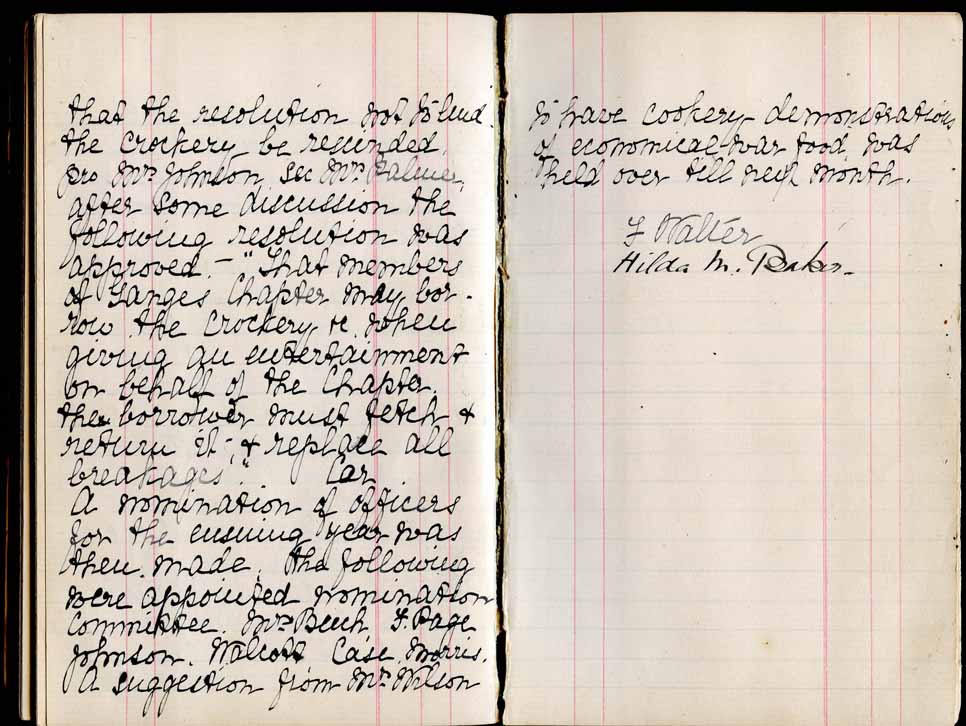 that the resolution not to lend
the crockery be rescinded.
pro Mrs Johnson. sec Mrs Palmer.
after some discussion the
following resolution was
approved. – "That members
of Ganges Chapter may bor-
row the crockery &c. when
giving an entertainment
on behalf of the Chapter.
the borrower must fetch &
return it; & replace all
breakages." Car
A nomination of officers
for the ensuing year was
then made. the following
were appointed nomination
Committee. Mrs Beech F. Page
Johnson. Walcott Case. Morris.
A suggestion from Mrs Wilson
to have cookery demonstrations
of economical war food was
held over till next month.
F Walter
Hilda M. Baker.